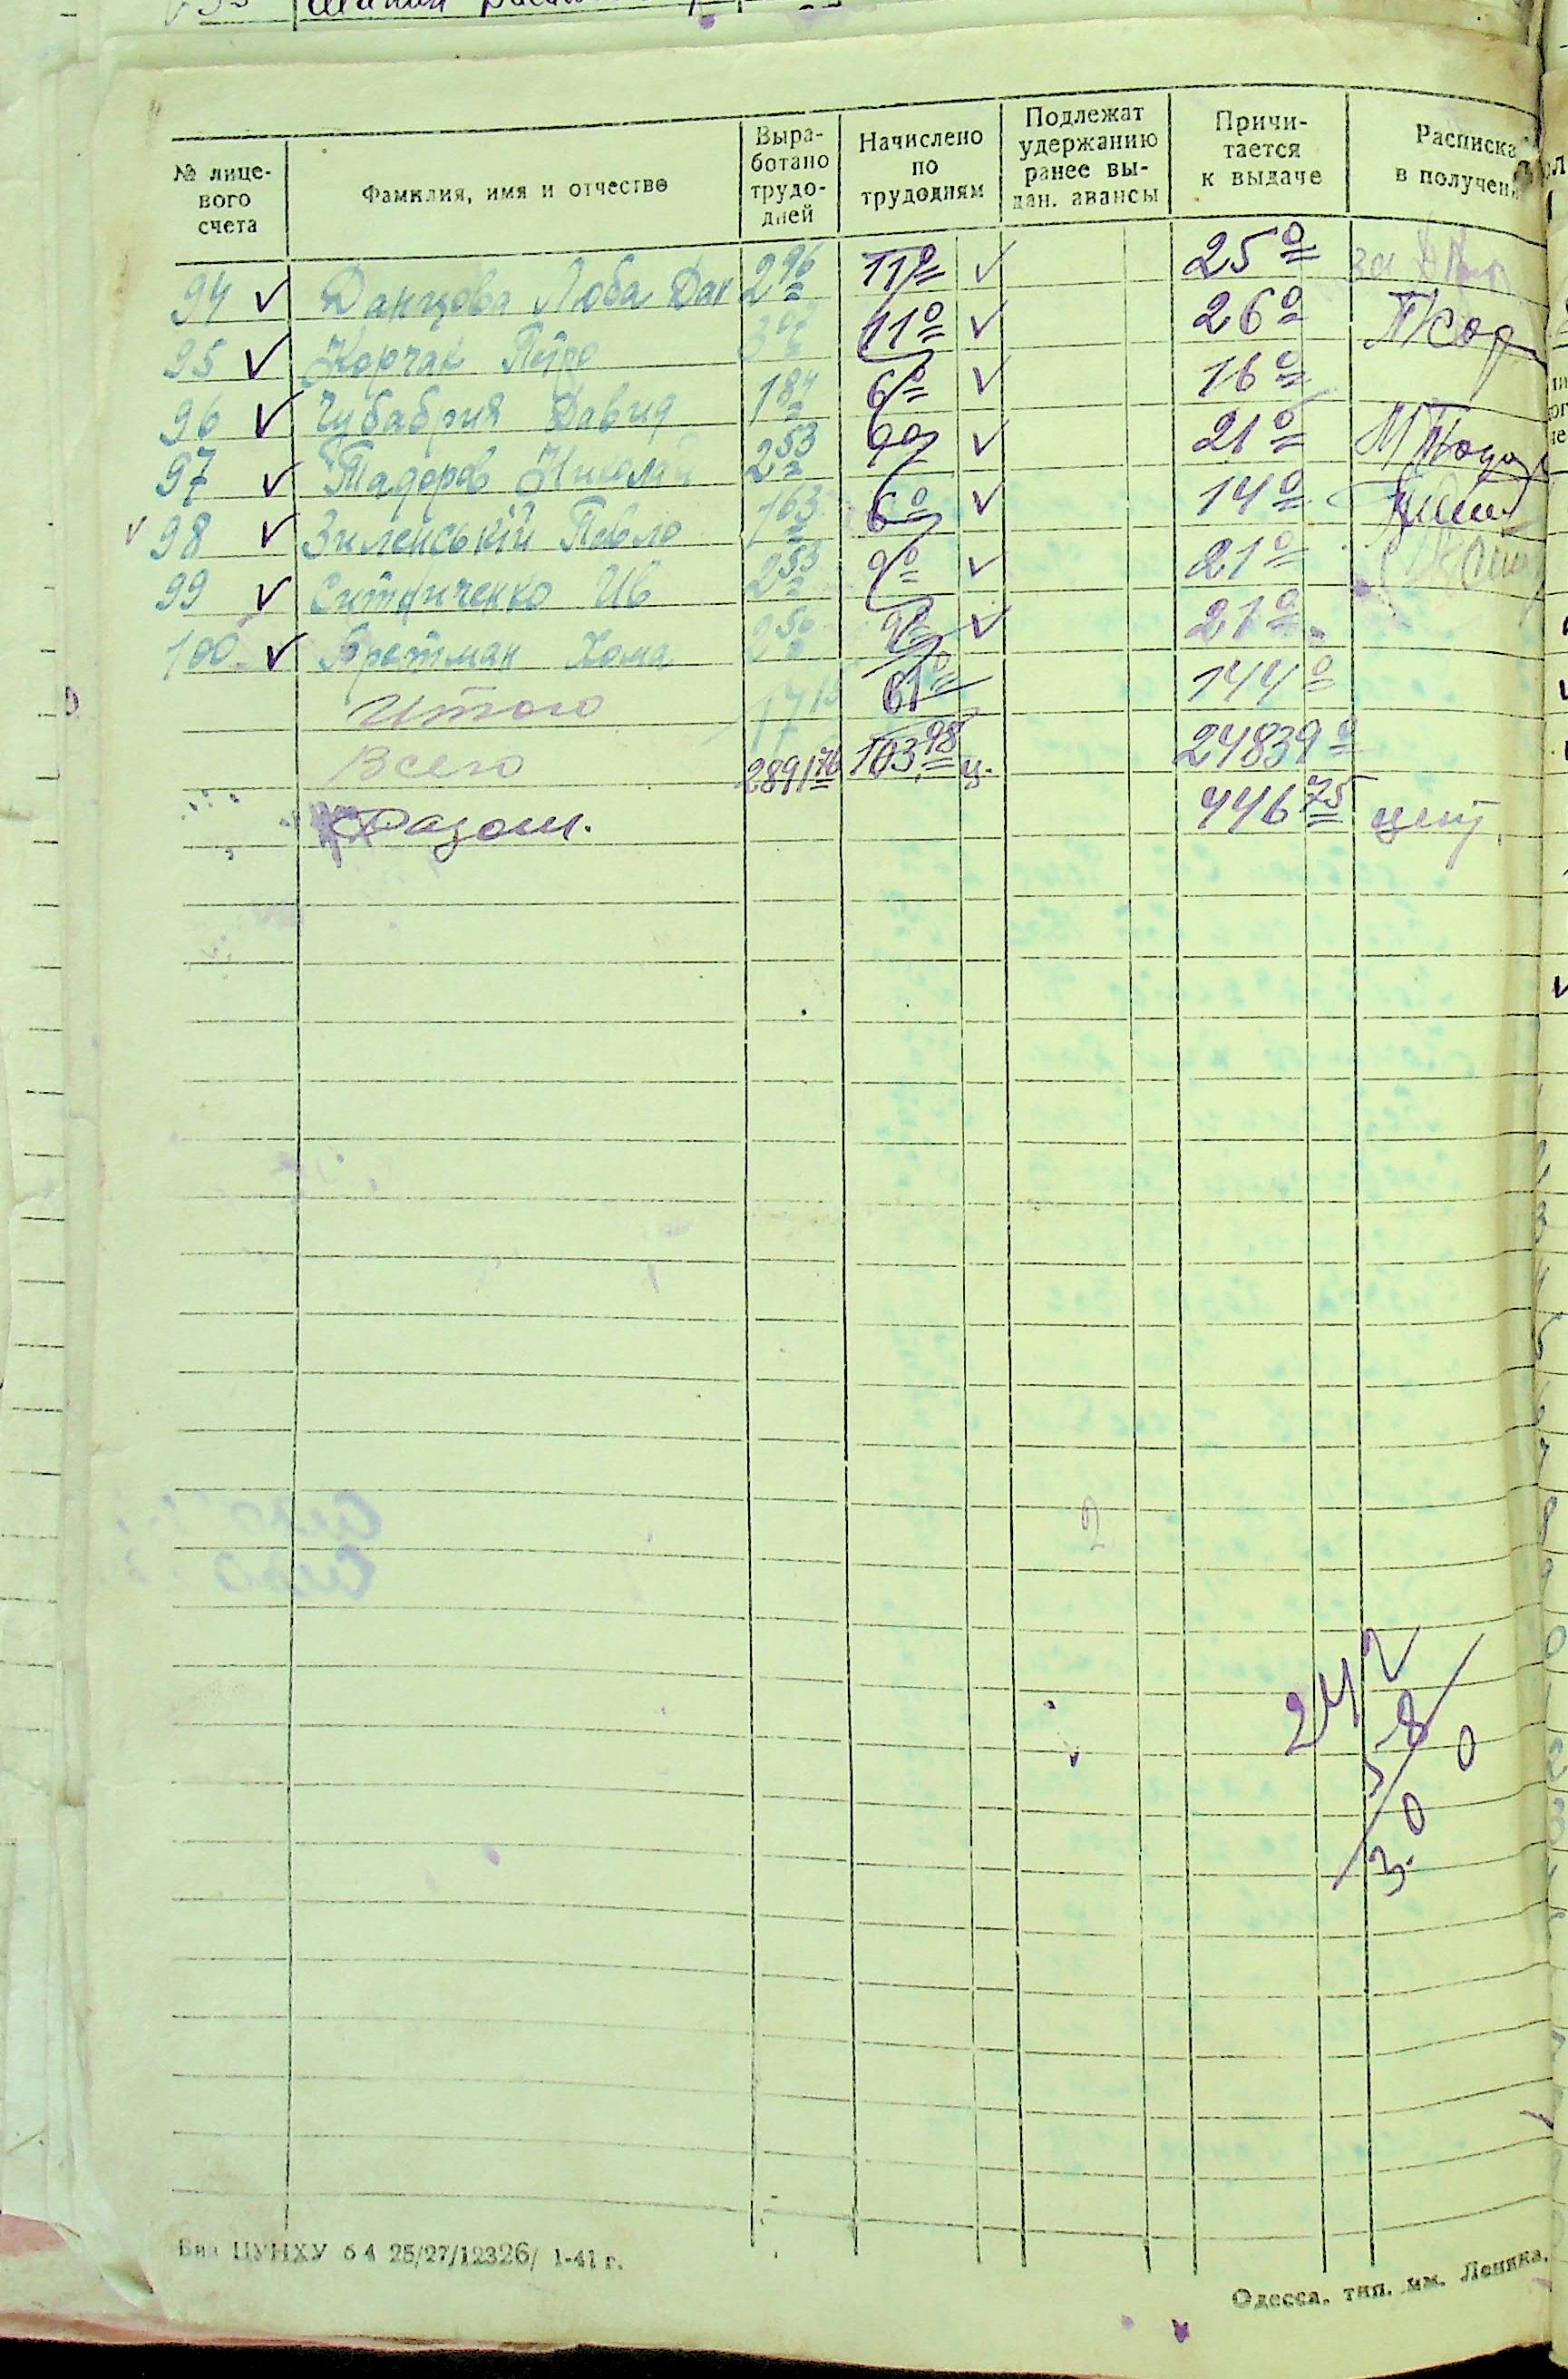 № лице-
вого
счета
Фамилия, имя и отчество
Выра-
ботано
трудо-
дней
Начислено
по
трудодням
Подлежат
удержанию
ранее вы-
дан. авансы
Причи-
тается
к выдаче
Расписка
в получен
94 ✓ Данцова Люба Дан 296 11 0 ✓ 25 0 за
95 ✓ Корчак Петро 307 11 0 ✓ 26 0 ПКор
96 ✓ Чубабрия Давид 184 6 0 ✓ 16 0
97 ✓ Тадоров Николай 253 9 0 ✓ 21 0
✓ 98 ✓ Зиленський Павло 163 6 0 ✓ 14 0
99 ✓ Ситниченко Ив 253 9 0 ✓ 21 0
100 ✓ Бретман Хома 256 9 0 ✓ 21 0
Итого 1713 61 0 144 0
Всего 28917 76 103,98 ц. 24839 0
Разом. 446 75 цнт.
2
242
8
0
0
3.
ЦУНХУ б 4 25/27/12326/ 1-41 г.
Одесса, тип. им. Ленина.